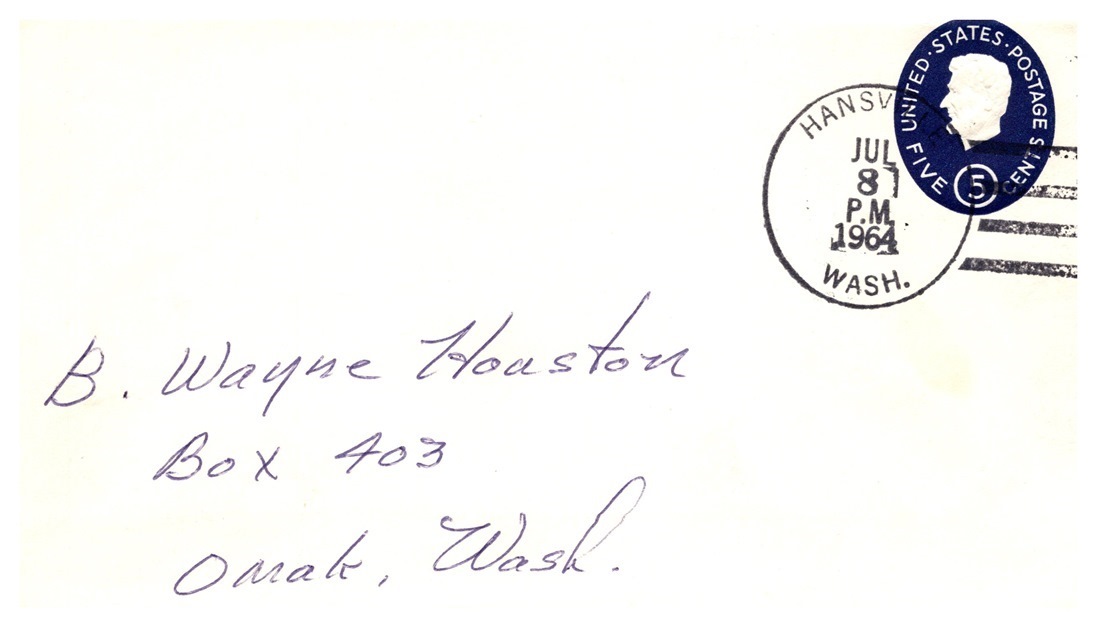 UNITED · STATES · POSTAGE
FIVE 5 CENTS
HANSVILLE
JUL
8
P.M.
1964
WASH.
B. Wayne Houston
Box 403
Omak, Wash.